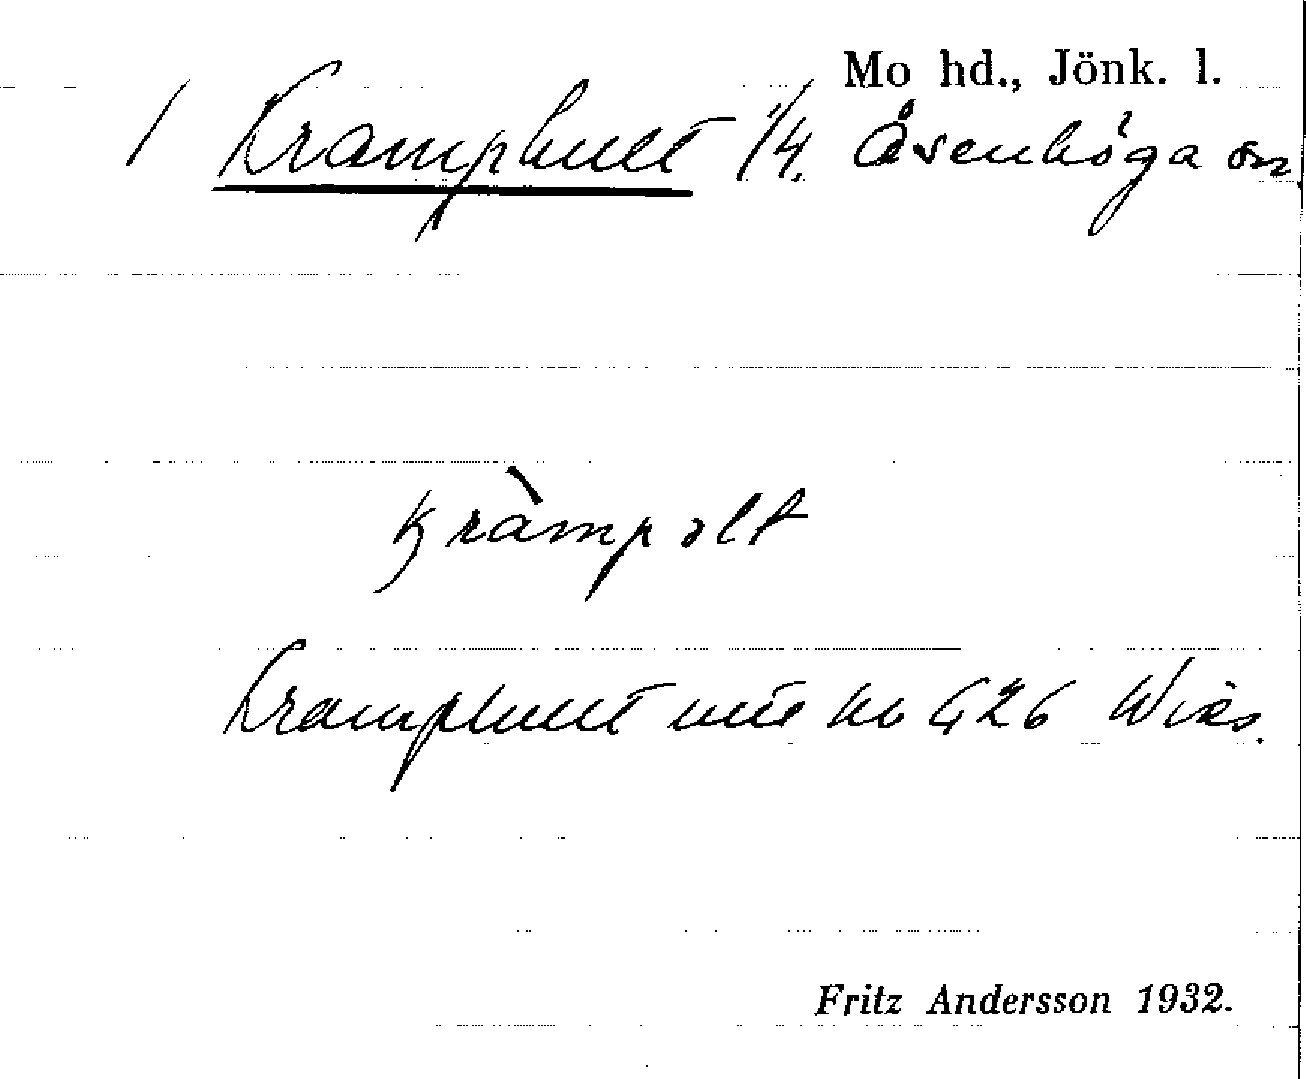 Mo hd., Jönk. l.
1 Kramphult 1/4. Åsenhöga sn
kràmpƏlt
Kramphult 426 Wies.
Fritz Andersson 1932.